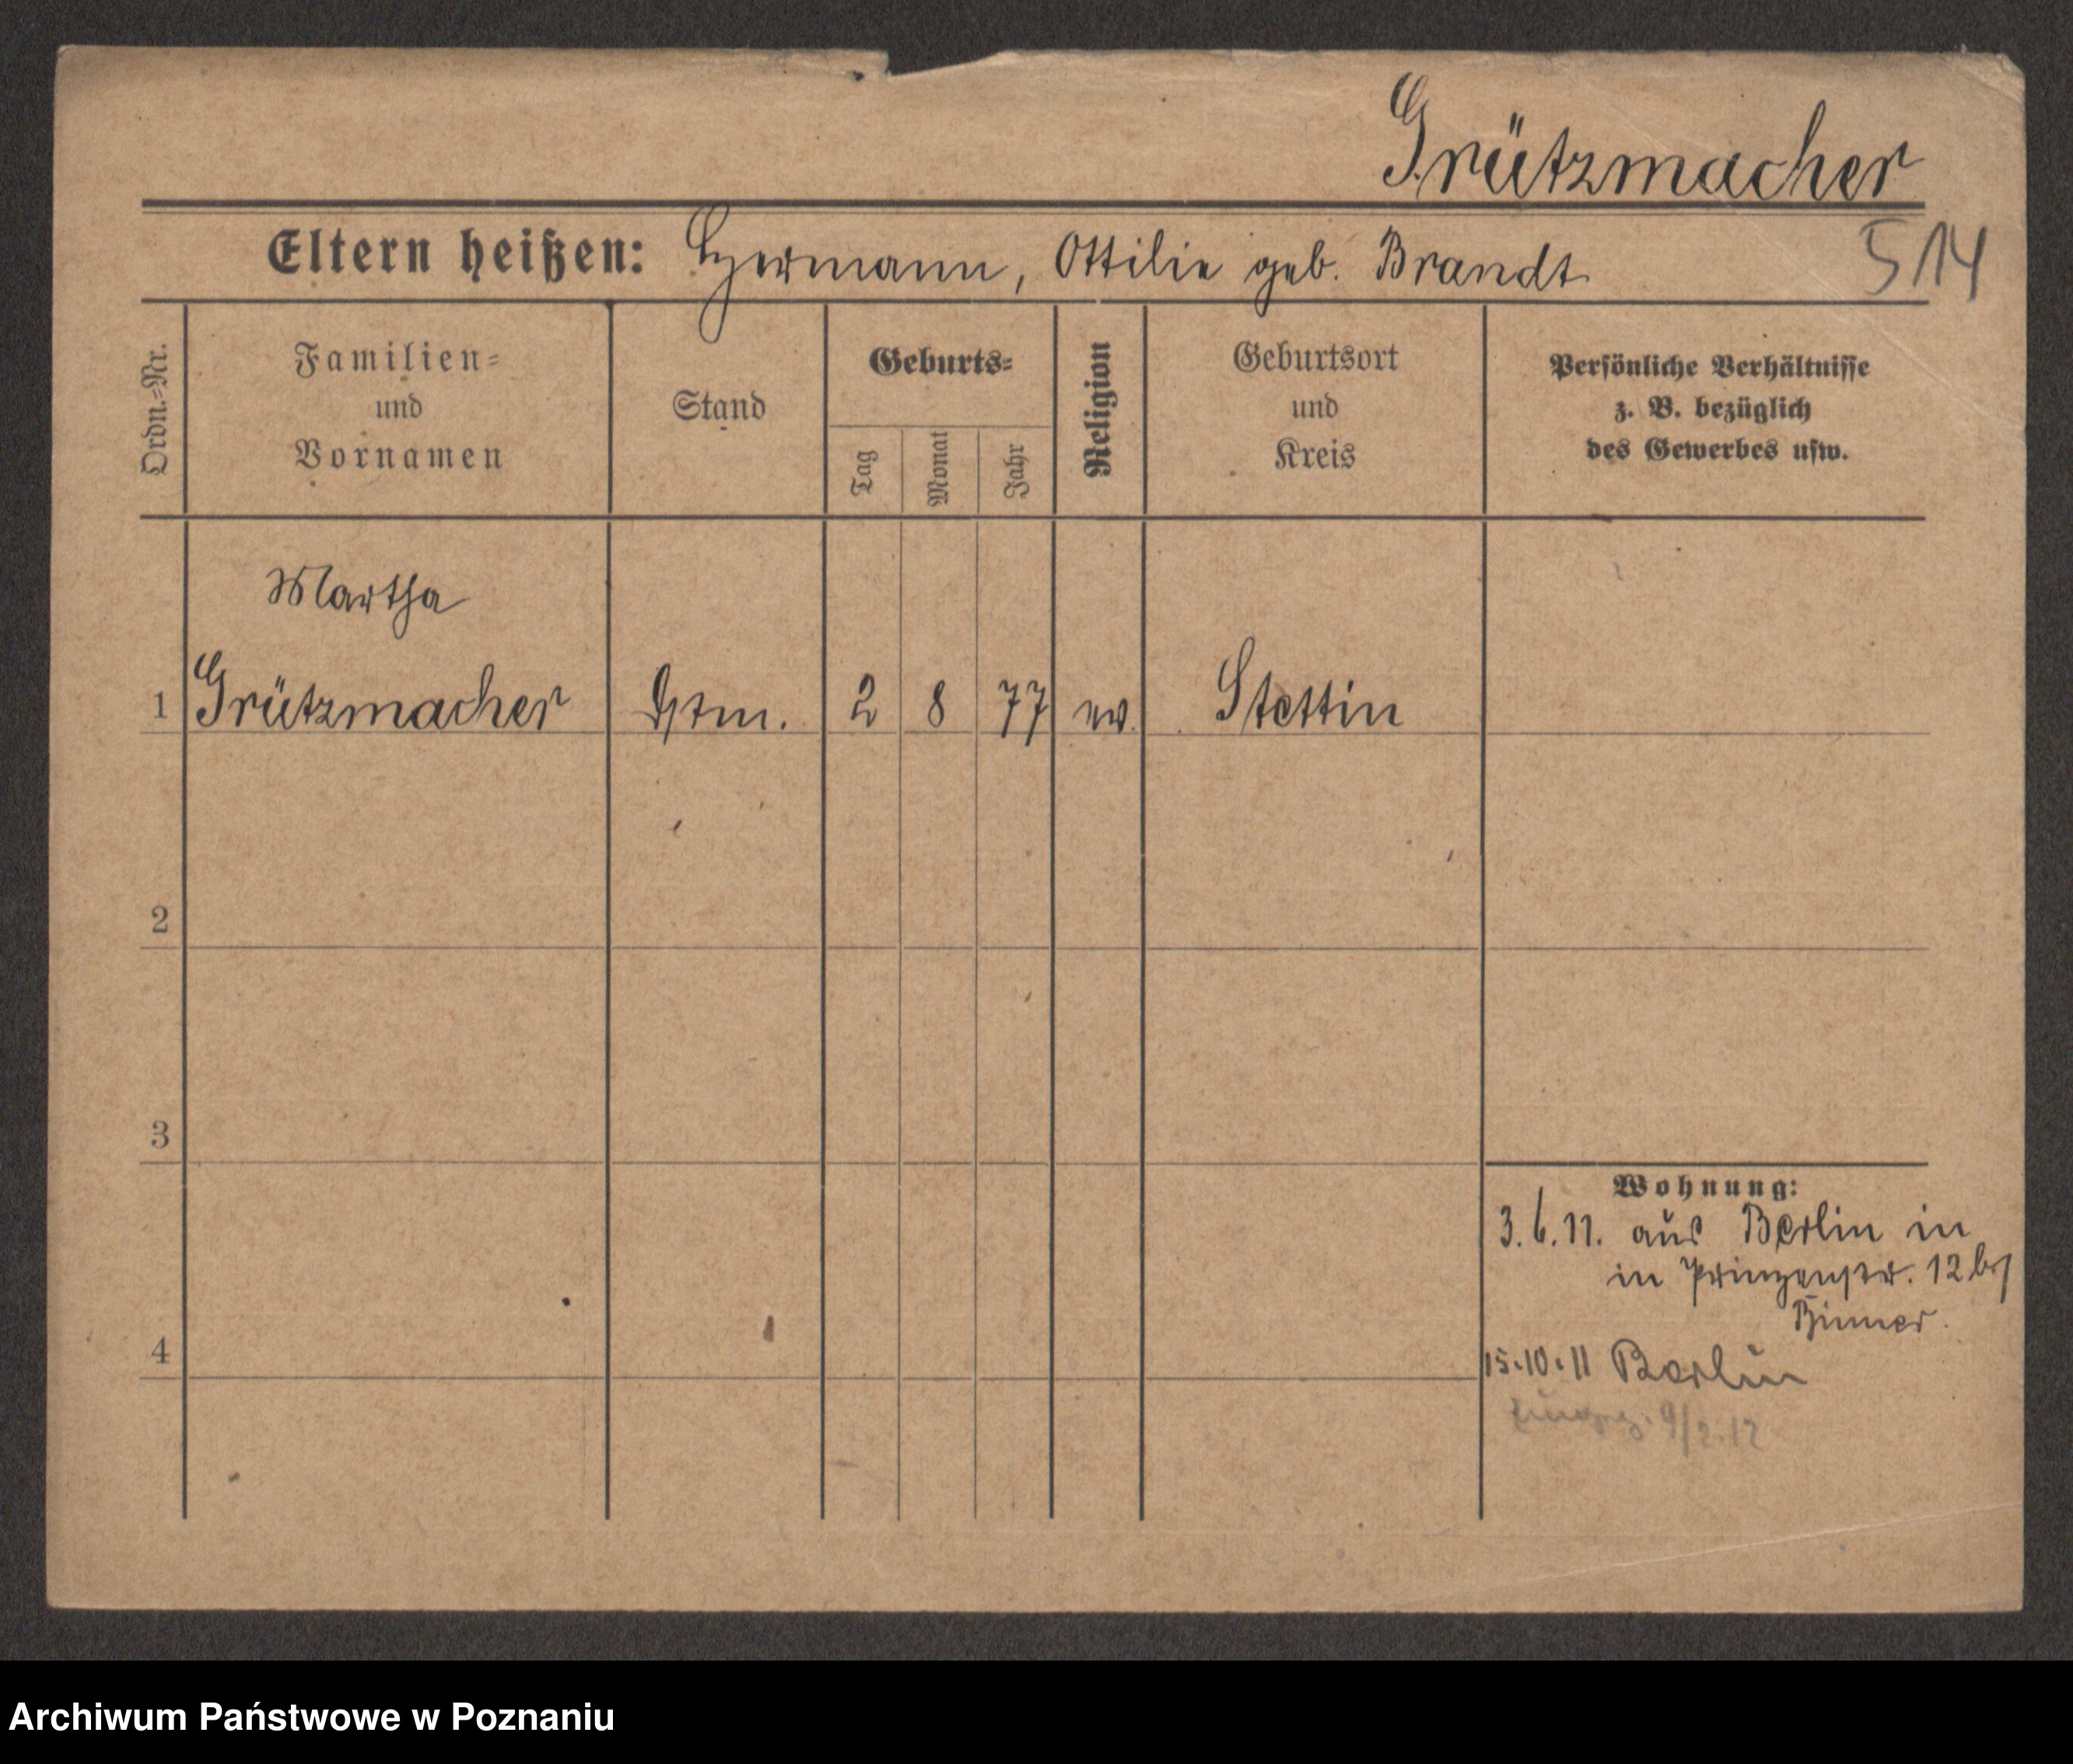 Grützmacher
Eltern heißen: Hermann, Ottilie geb. Brandt
514
Ordn.-Nr.
Familien-
und
Vornamen
Stand
Geburts-
Tag
Monat
Jahr
Religion
Geburtsort
und
Kreis
Persönliche Verhältnisse
z. B. bezüglich
des Gewerbes usw.
Martha
1 Grützmacher 2 8 77 ev. Stettin
2
3
4
Wohnung:
3.6.11. aus Berlin in
in Prinzenstr. 12 bei
Binner.
15.10.11 Berlin
9/2.12
Archiwum Państwowe w Poznaniu